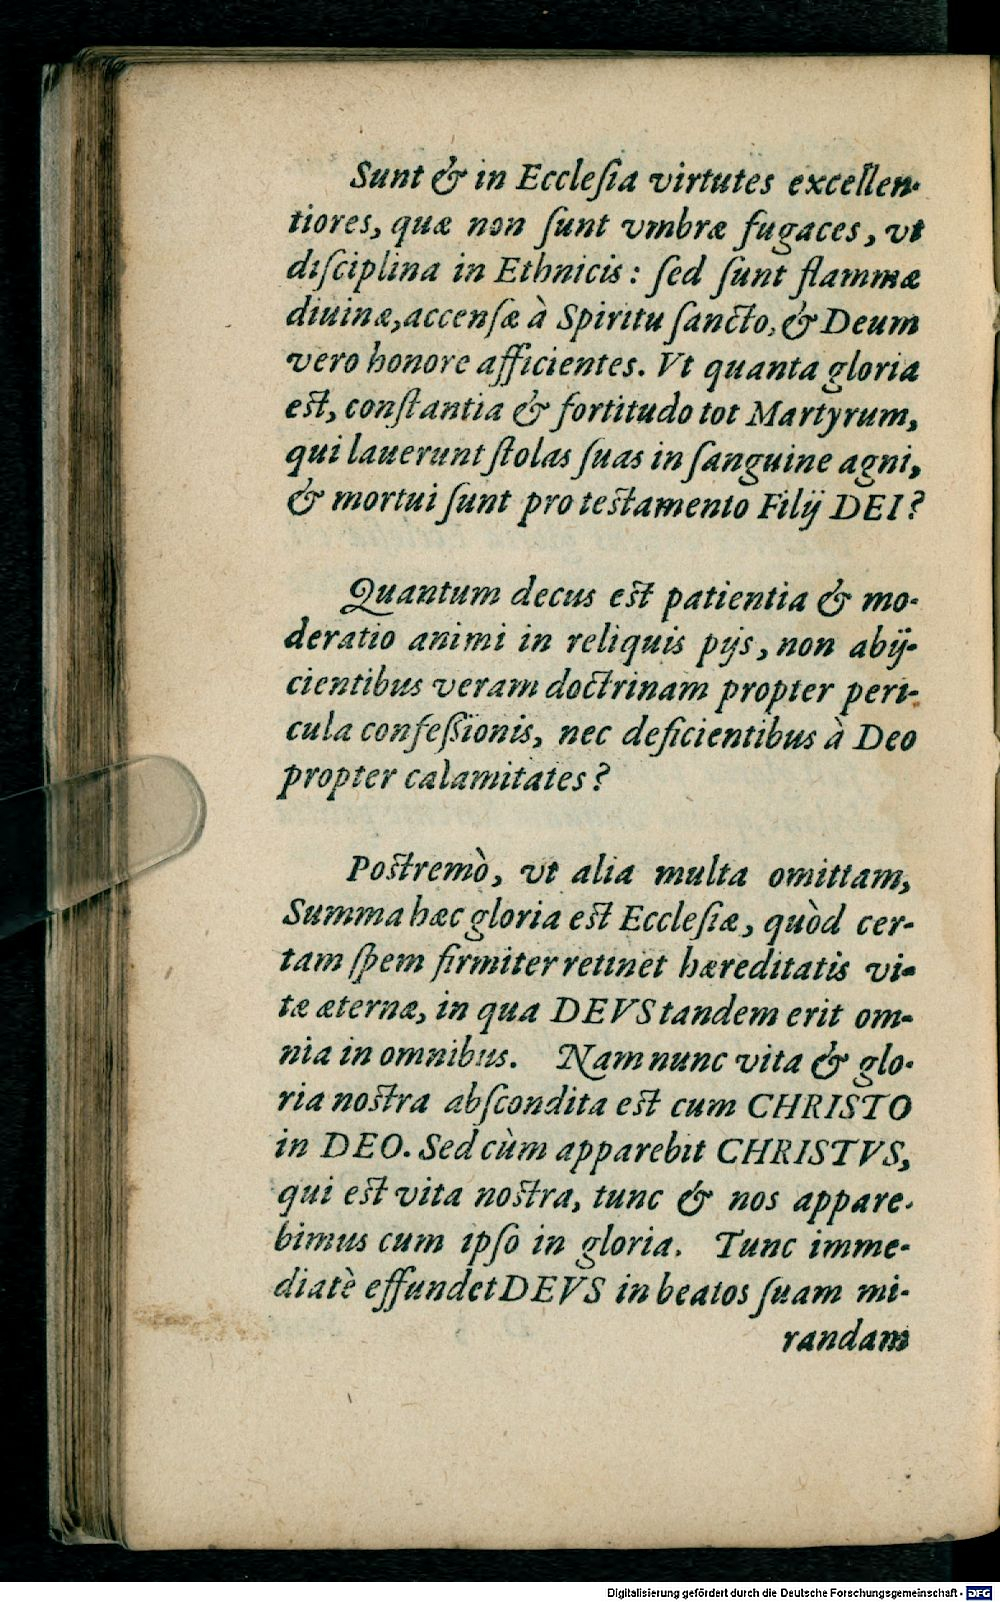 Sunt & in Ecclesia virtutes excellen-
tiores, quæ non ſunt vmbræ fugaces, vt
diſciplina in Ethnicis: ſed ſunt flammæ
diuinæ, accenſæ à Spiritu ſancto, & Deum
vero honore afficientes. Vt quanta gloria
est, conſtantia & fortitudo tot Martyrum,
qui lauerunt ſtolas ſuas in ſanguine agni,
& mortui ſunt pro testamento Filij DEI?
Quantum decus est patientia & mo-
deratio animi in reliquis pijs, non abij-
cientibus veram doctrinam propter peri-
cula confeßionis, nec deficientibus à Deo
propter calamitates?
Postremò, vt alia multa omittam,
Summa hæc gloria est Eccleſiæ, quòd cer-
tam ſpem firmiter retinet hæreditatis vi-
tæ æternæ, in qua DEVS tandem erit om-
nia in omnibus. Nam nunc vita & glo-
ria nostra abſcondita est cum CHRISTO
in DEO. Sed cùm apparebit CHRISTVS,
qui est vita nostra, tunc & nos appare-
bimus cum ipſo in gloria. Tunc imme-
diatè effundet DEVS in beatos ſuam mi-
randam
Digitalisierung gefördert durch die Deutsche Forschungsgemeinschaft - DFG